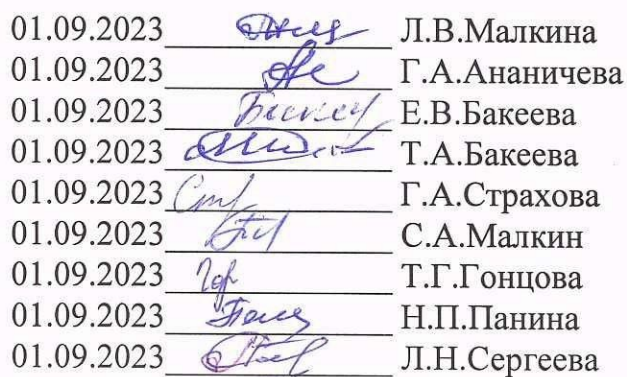 01.09.2023 Л.В.Малкина
01.09.2023 Г.А.Ананичева
01.09.2023 Е.В.Бакеева
01.09.2023 Т.А.Бакеева
01.09.2023 Г.А.Страхова
01.09.2023 С.А.Малкин
01.09.2023 Т.Г.Гонцова
01.09.2023 Н.П.Панина
01.09.2023 Л.Н.Сергеева